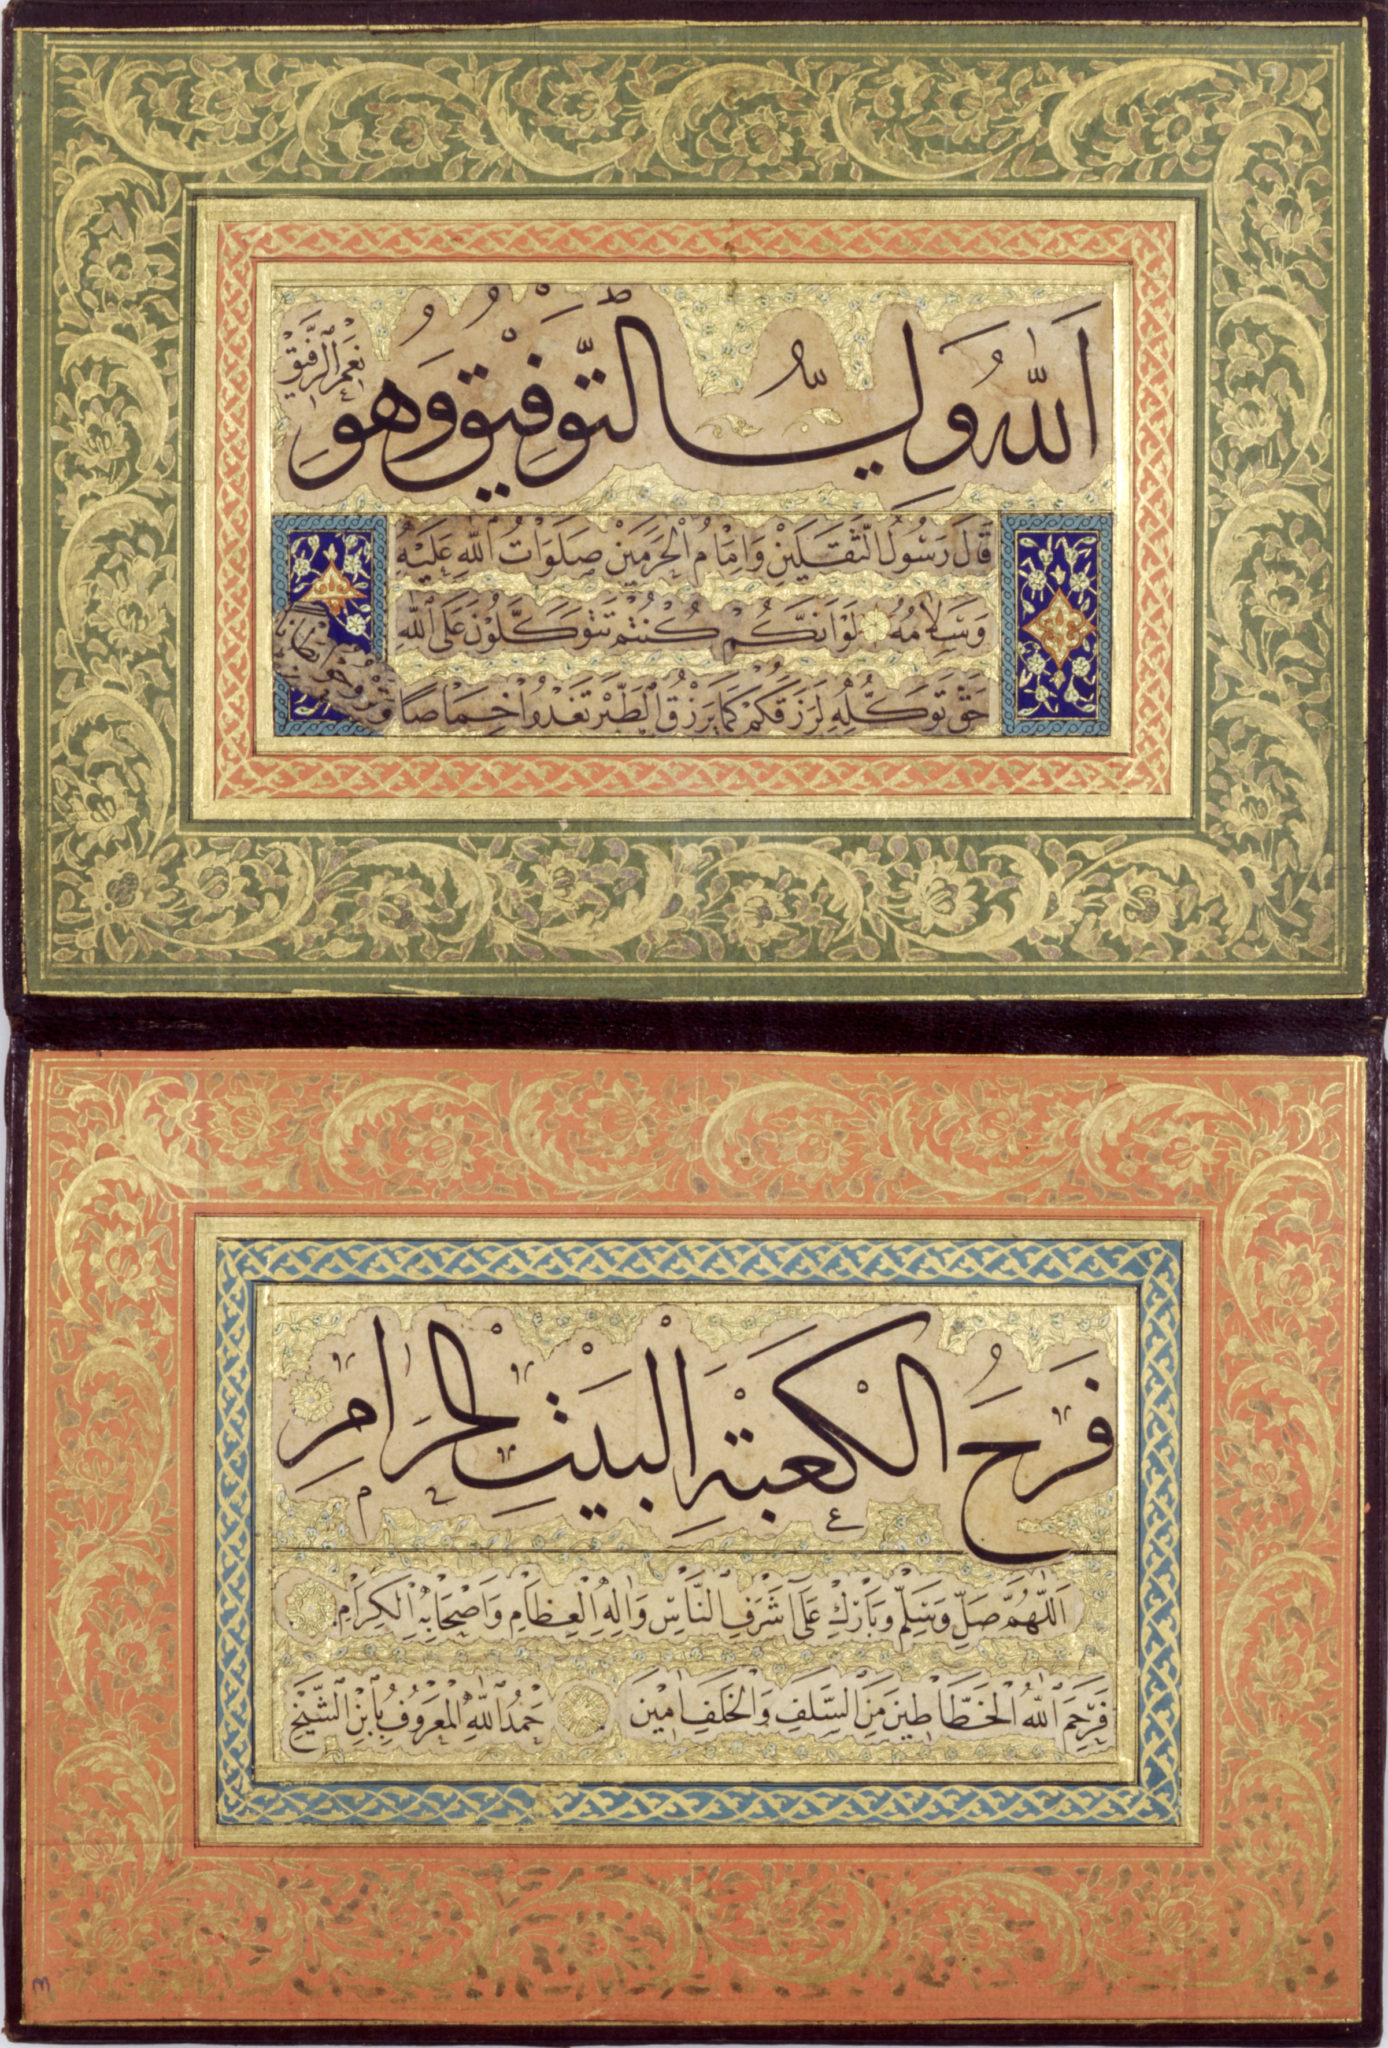 اَللّٰهُ وَلِيُّ التَّوْفِيقِ وَهُوَ
نِعْمَ الرَّفِيقُ
قَالَ رَسُولُ الثَّقَلَيْنِ وَاِمَامُ الْحَرَمَيْنِ صَلَوَاتُ اللّٰهِ عَلَيْهِ
وَسَلَامُهُ لَوْ اَنَّكُمْ كُنْتُمْ تَتَوَكَّلُونَ عَلَى اللّٰهِ
حَقَّ تَوَكُّلِهِ لَرَزَقَكُمْ كَمَا يَرْزُقُ الطَّيْرَ تَغْدُو خِمَاصًا
وَتَرُوحُ بِطَانًا
فَرَحُ الْكَعْبَةِ الْبَيْتِ الْحَرَامِ
اَللّٰهُمَّ صَلِّ وَسَلِّمْ وَبَارِكْ عَلَى اَشْرَفِ النَّاسِ وَاٰلِهِ الْعِظَامِ وَاَصْحَابِهِ الْكِرَامِ
فَرَحِمَ اللّٰهُ الْخَطَّاطِينَ مِنَ السَّلَفِ وَالْخَلَفِ اٰمِينَ حَمْدُ اللّٰهِ الْمَعْرُوفُ بِابْنِ الشَّيْخِ
٣